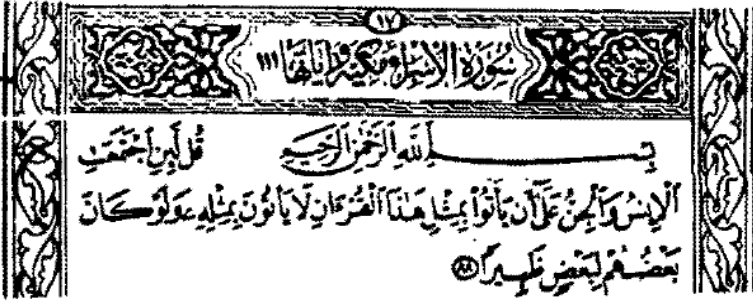 ١٧
سُورَةُ الْإِسْرَاءِ مَكِّيَّة وَءَايَاتُهَا ١١١
بِسْمِ اللَّهِ الرَّحْمَٰنِ الرَّحِيمِ قُل لَّئِنِ اجْتَمَعَتِ
الْإِنسُ وَالْجِنُّ عَلَىٰ أَن يَأْتُوا بِمِثْلِ هَٰذَا الْقُرْءَانِ لَا يَأْتُونَ بِمِثْلِهِ وَلَوْ كَانَ
بَعْضُهُمْ لِبَعْضٍ ظَهِيرًا ٨٨